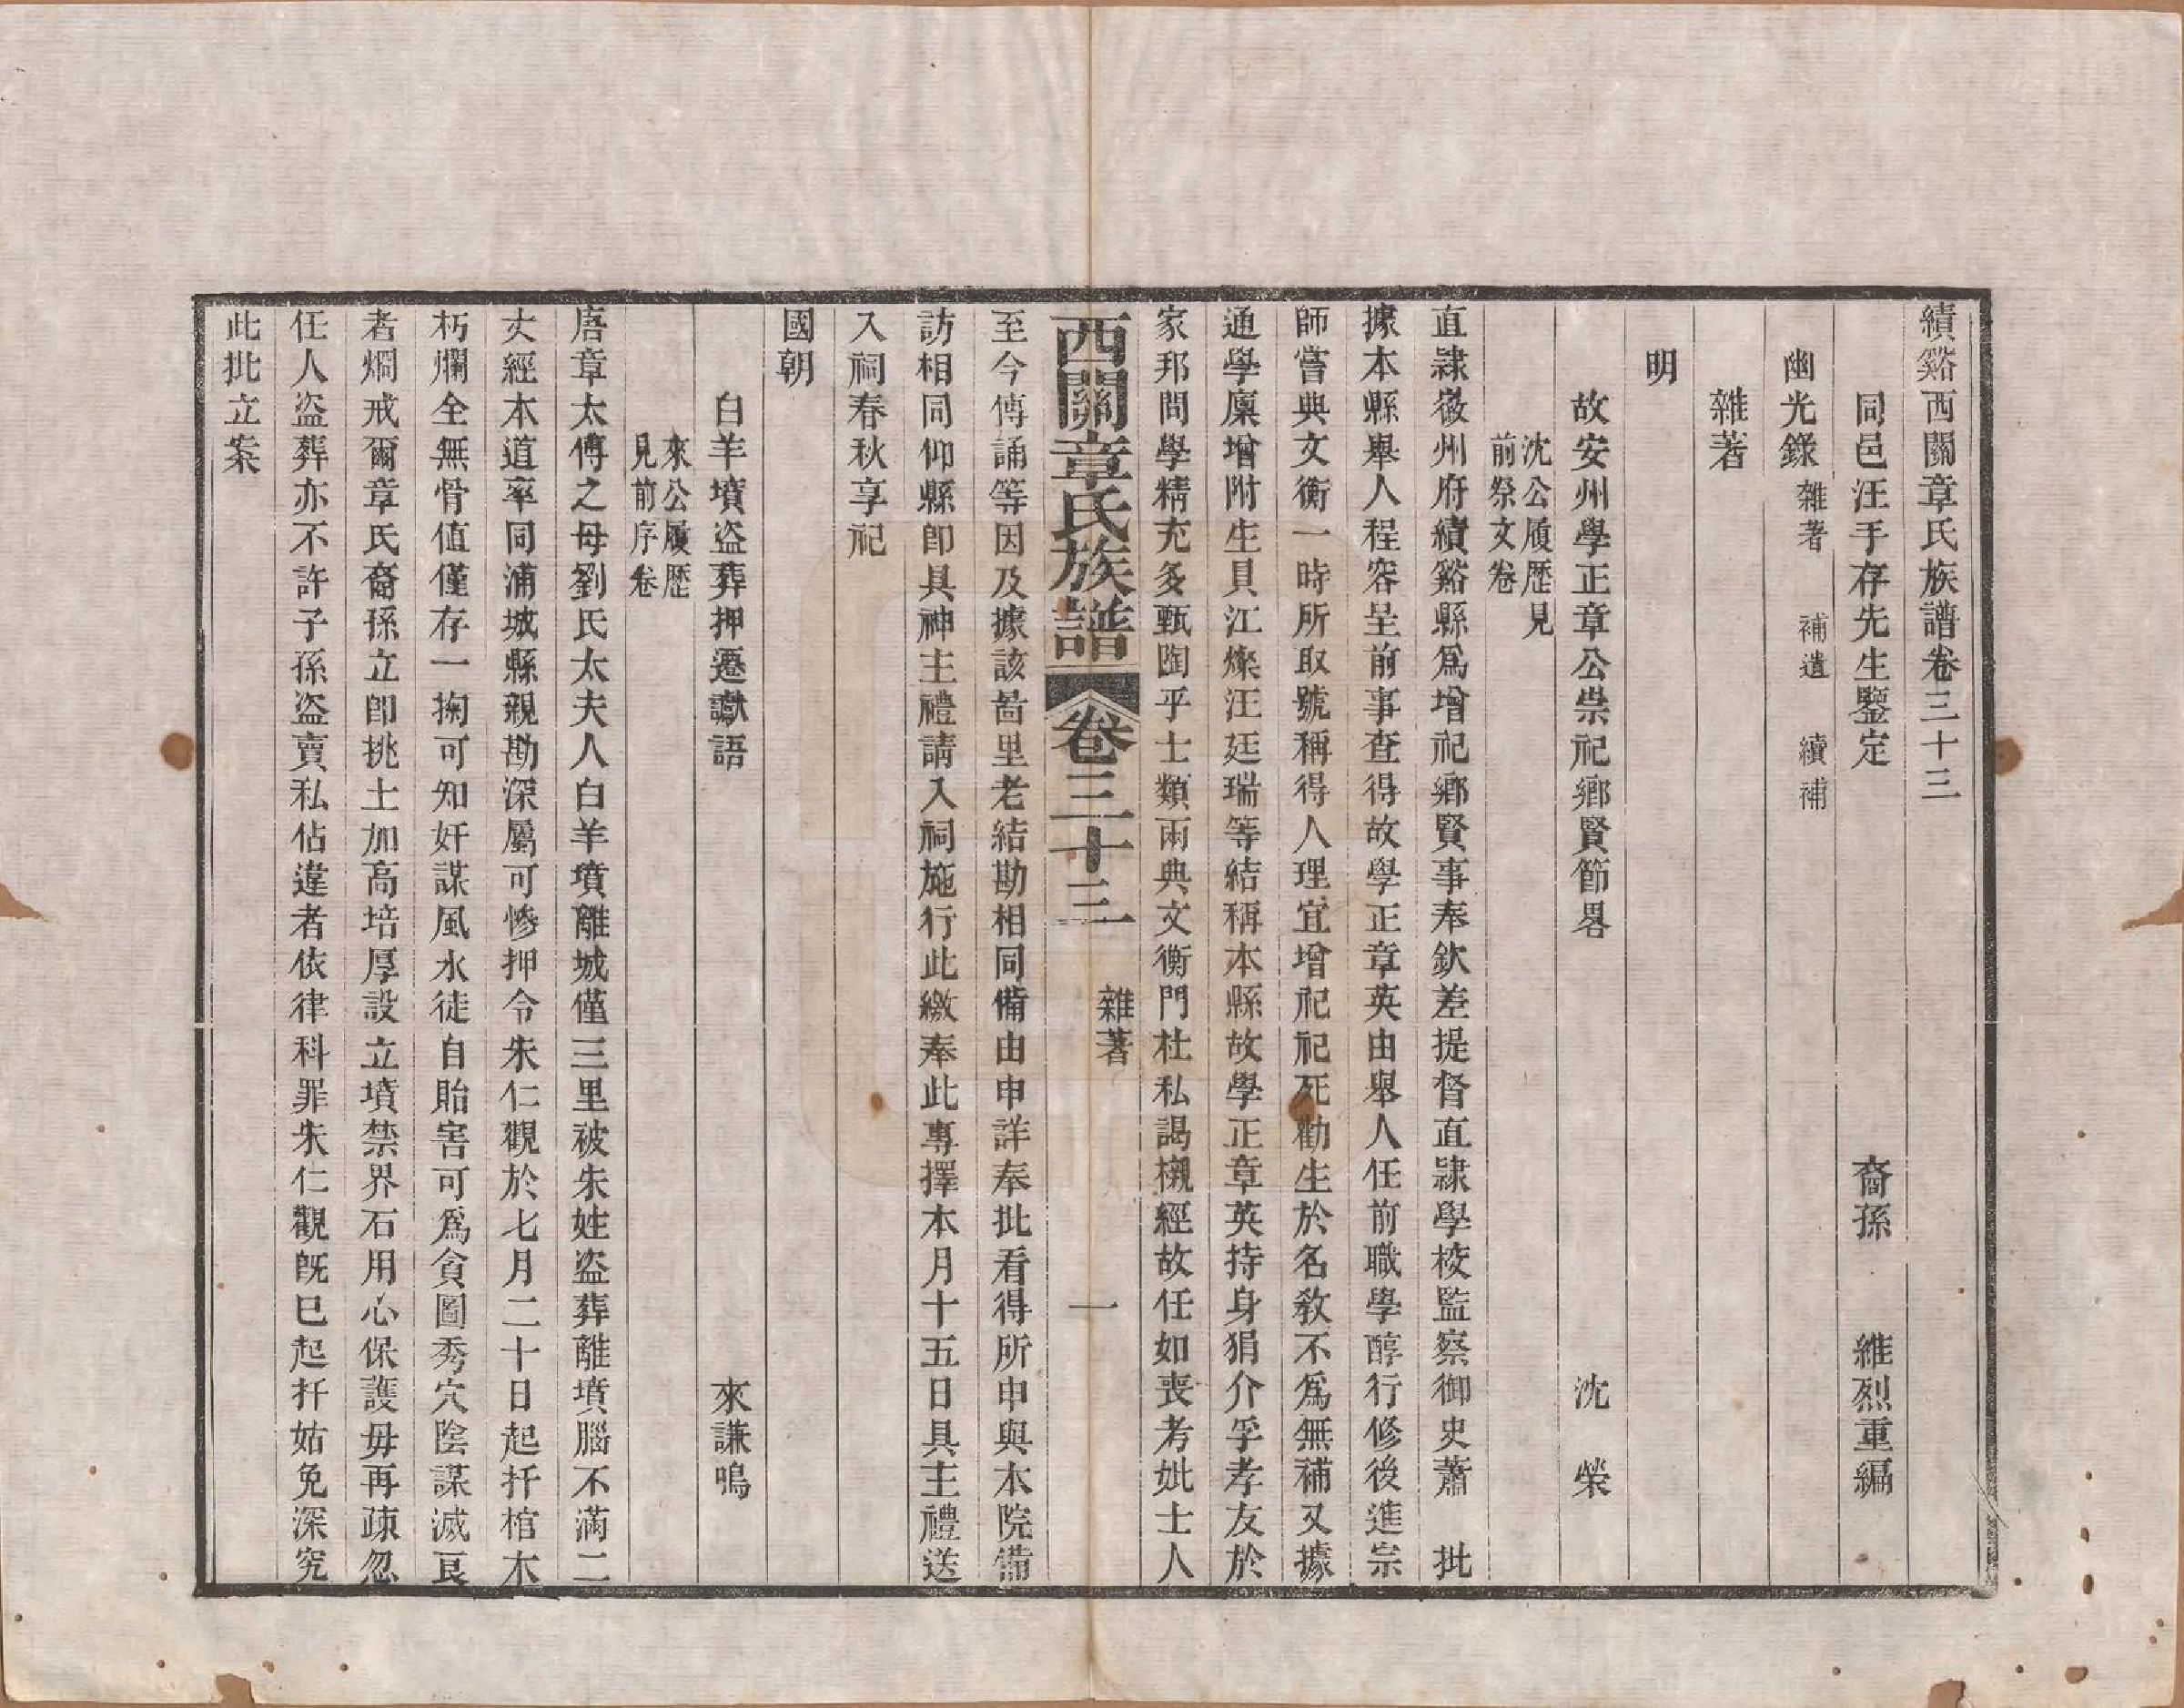 績谿西關章氏族譜卷三十三
同邑汪手存先生鑒定　裔孫　維烈重編
幽光錄　雜著　補遺　續補
雜著
明
故安州學正章公祟祀鄉賢節畧　沈　榮
沈公履歷見
前祭文卷
直隷徽州府績谿縣爲增祀鄉賢事奉欽差提督直隷學校監察御史蕭　批
據本縣舉人程容呈前事查得故學正章英由舉人任前職學醇行修後進宗
師嘗典文衡一時所取號稱得人理宜增祀祀死勸生於名敎不爲無補又據
通學廩增附生貝江燦汪廷瑞等結稱本縣故學正章英持身狷介孚孝友於
家邦問學精充多甄陶乎士類兩典文衡門杜私謁櫬經故任如喪考妣士人
西關章氏族譜　卷三十三　雜著　一
至今傳誦等因及據該啚里老結勘相同備由申詳奉批看得所申與本院備
訪相同仰縣卽具神主禮請入祠施行此繳奉此專擇本月十五日具主禮送
入祠春秋享祀
國朝
白羊墳盜葬押遷讞語　來謙鳴
來公履歷
見前序卷
唐章太傅之母劉氏太夫人白羊墳離城僅三里被朱姓盜葬離墳腦不滿二
丈經本道率同浦城縣親勘深屬可慘押令朱仁觀於七月二十日起扦棺木
朽爛全無骨值僅存一掬可知奸謀風水徒自貽害可爲貪圖秀穴陰謀滅良
者烱戒爾章氏裔孫立卽挑土加高培厚設立墳禁界石用心保護毋再疎忽
任人盜葬亦不許子孫盜賣私佔違者依律科罪朱仁觀旣已起扦姑免深究
此批立案